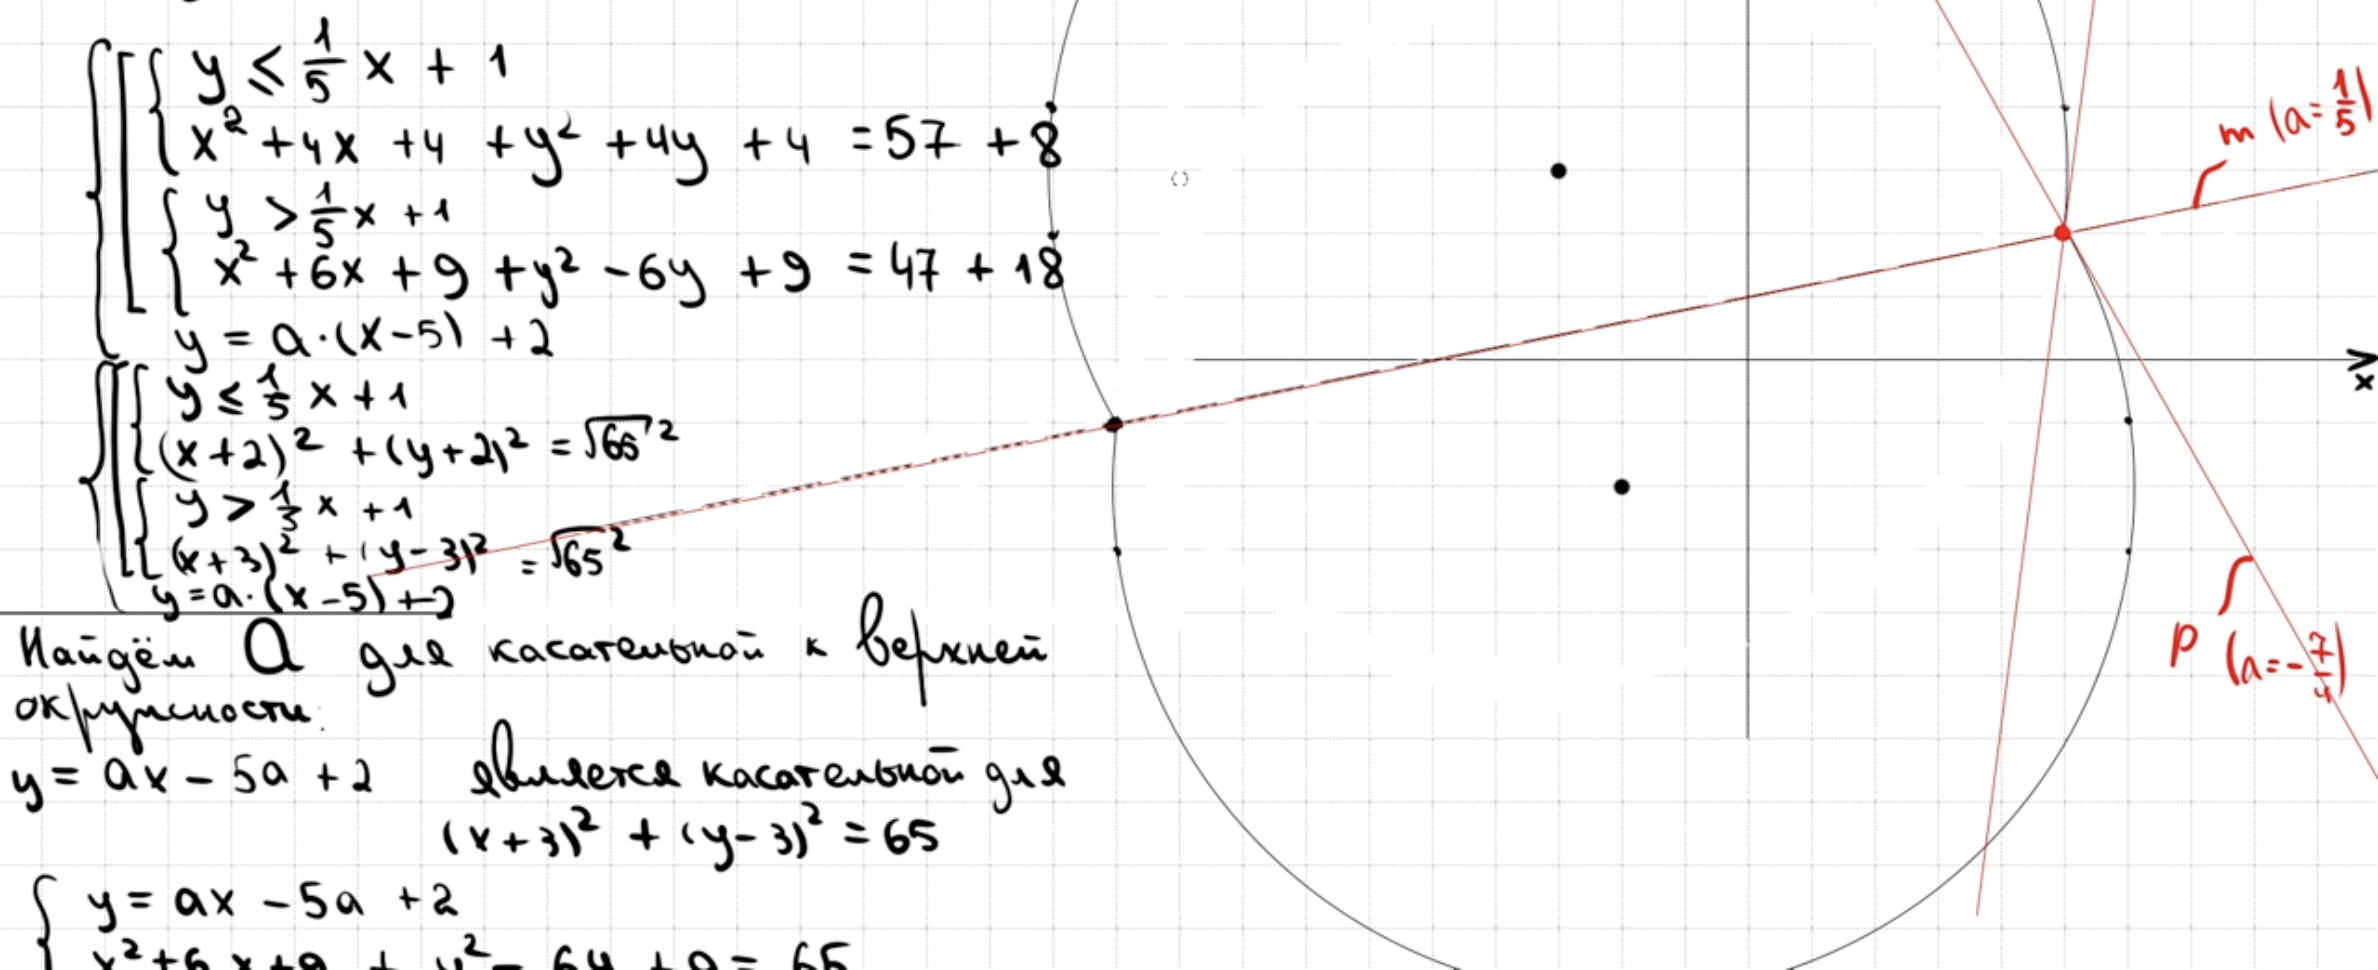 y ≤ 1/5 x + 1
x² + 4x + 4 + y² + 4y + 4 = 57 + 8
y > 1/5 x + 1
x² + 6x + 9 + y² - 6y + 9 = 47 + 18
y = a·(x-5) + 2
y ≤ 1/5 x + 1
(x+2)² + (y+2)² = √65²
y > 1/3 x + 1
(x+3)² + (y-3)² = √65²
y = a·(x-5) + 2
Найдём a для касательной к верхней
окружности:
y = ax - 5a + 2 является касательной для
(x+3)² + (y-3)² = 65
y = ax - 5a + 2
x² + 6x + 9 + y² - 6y + 9 = 65
m (a = 1/5)
x
p (a = -7/4)